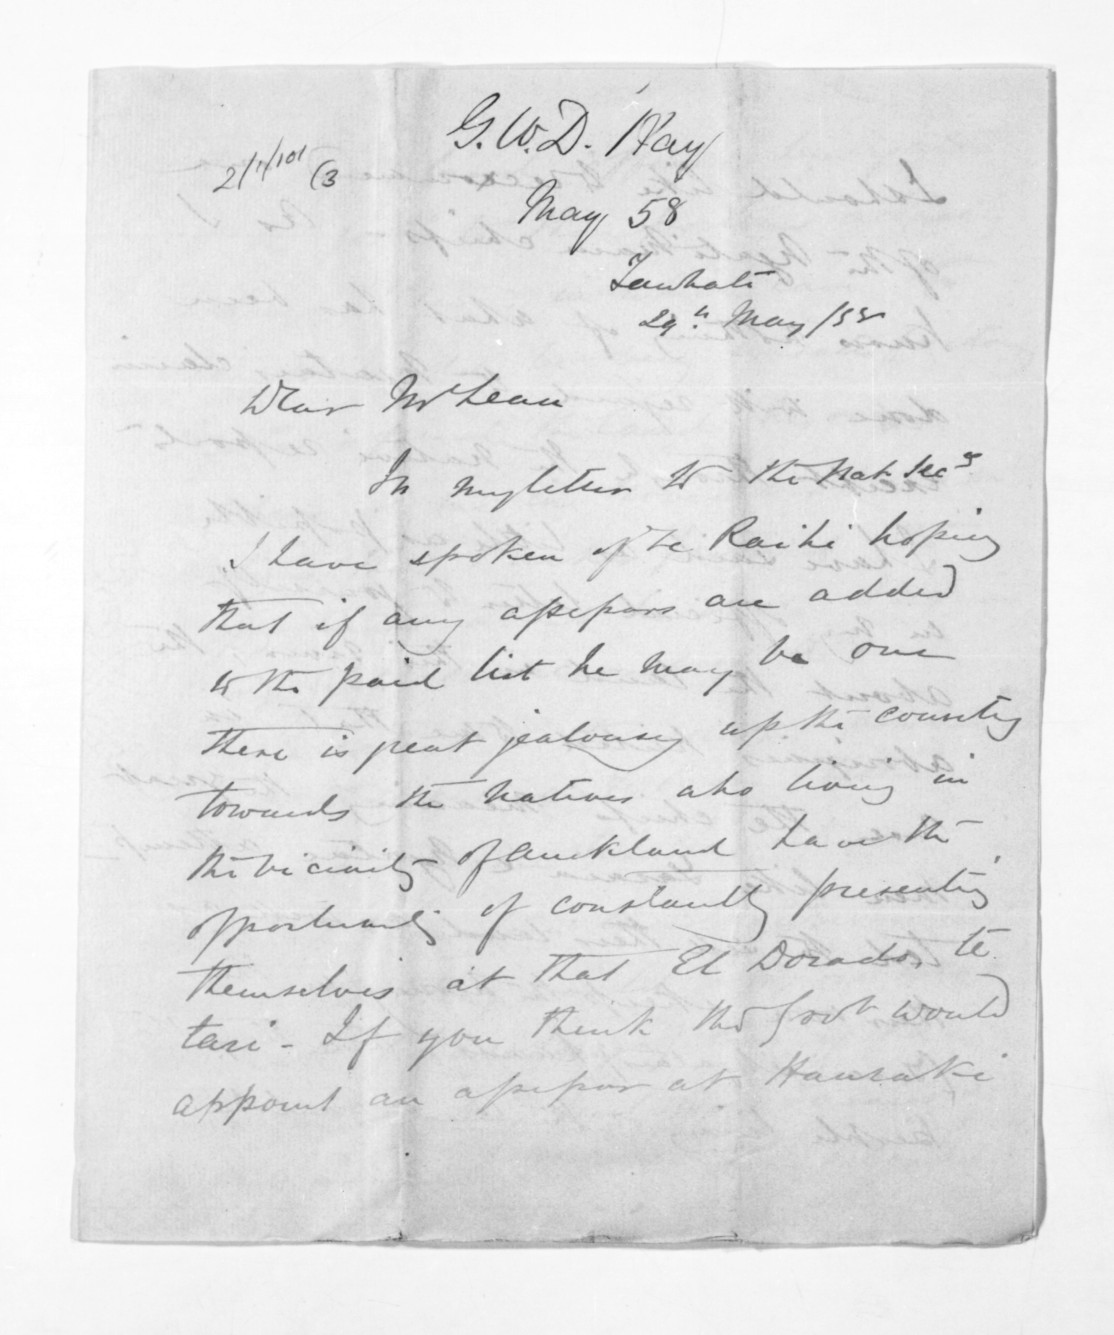 G.W.D. Hay
2/1/101 (3
May 58
29th May /58
Dear McLean
In my letter to the Nat Secy
I have spoken of Te Raihi hoping
that if any assessors are added
to the paid list he may be one
there is great jealousy up the country
towards the natives who living in
the vicinity of Auckland have the
opportunity of constantly presenting
themselves at that El Dorado, te
tari - If you think the Govt would
appoint an assessor at Hauraki